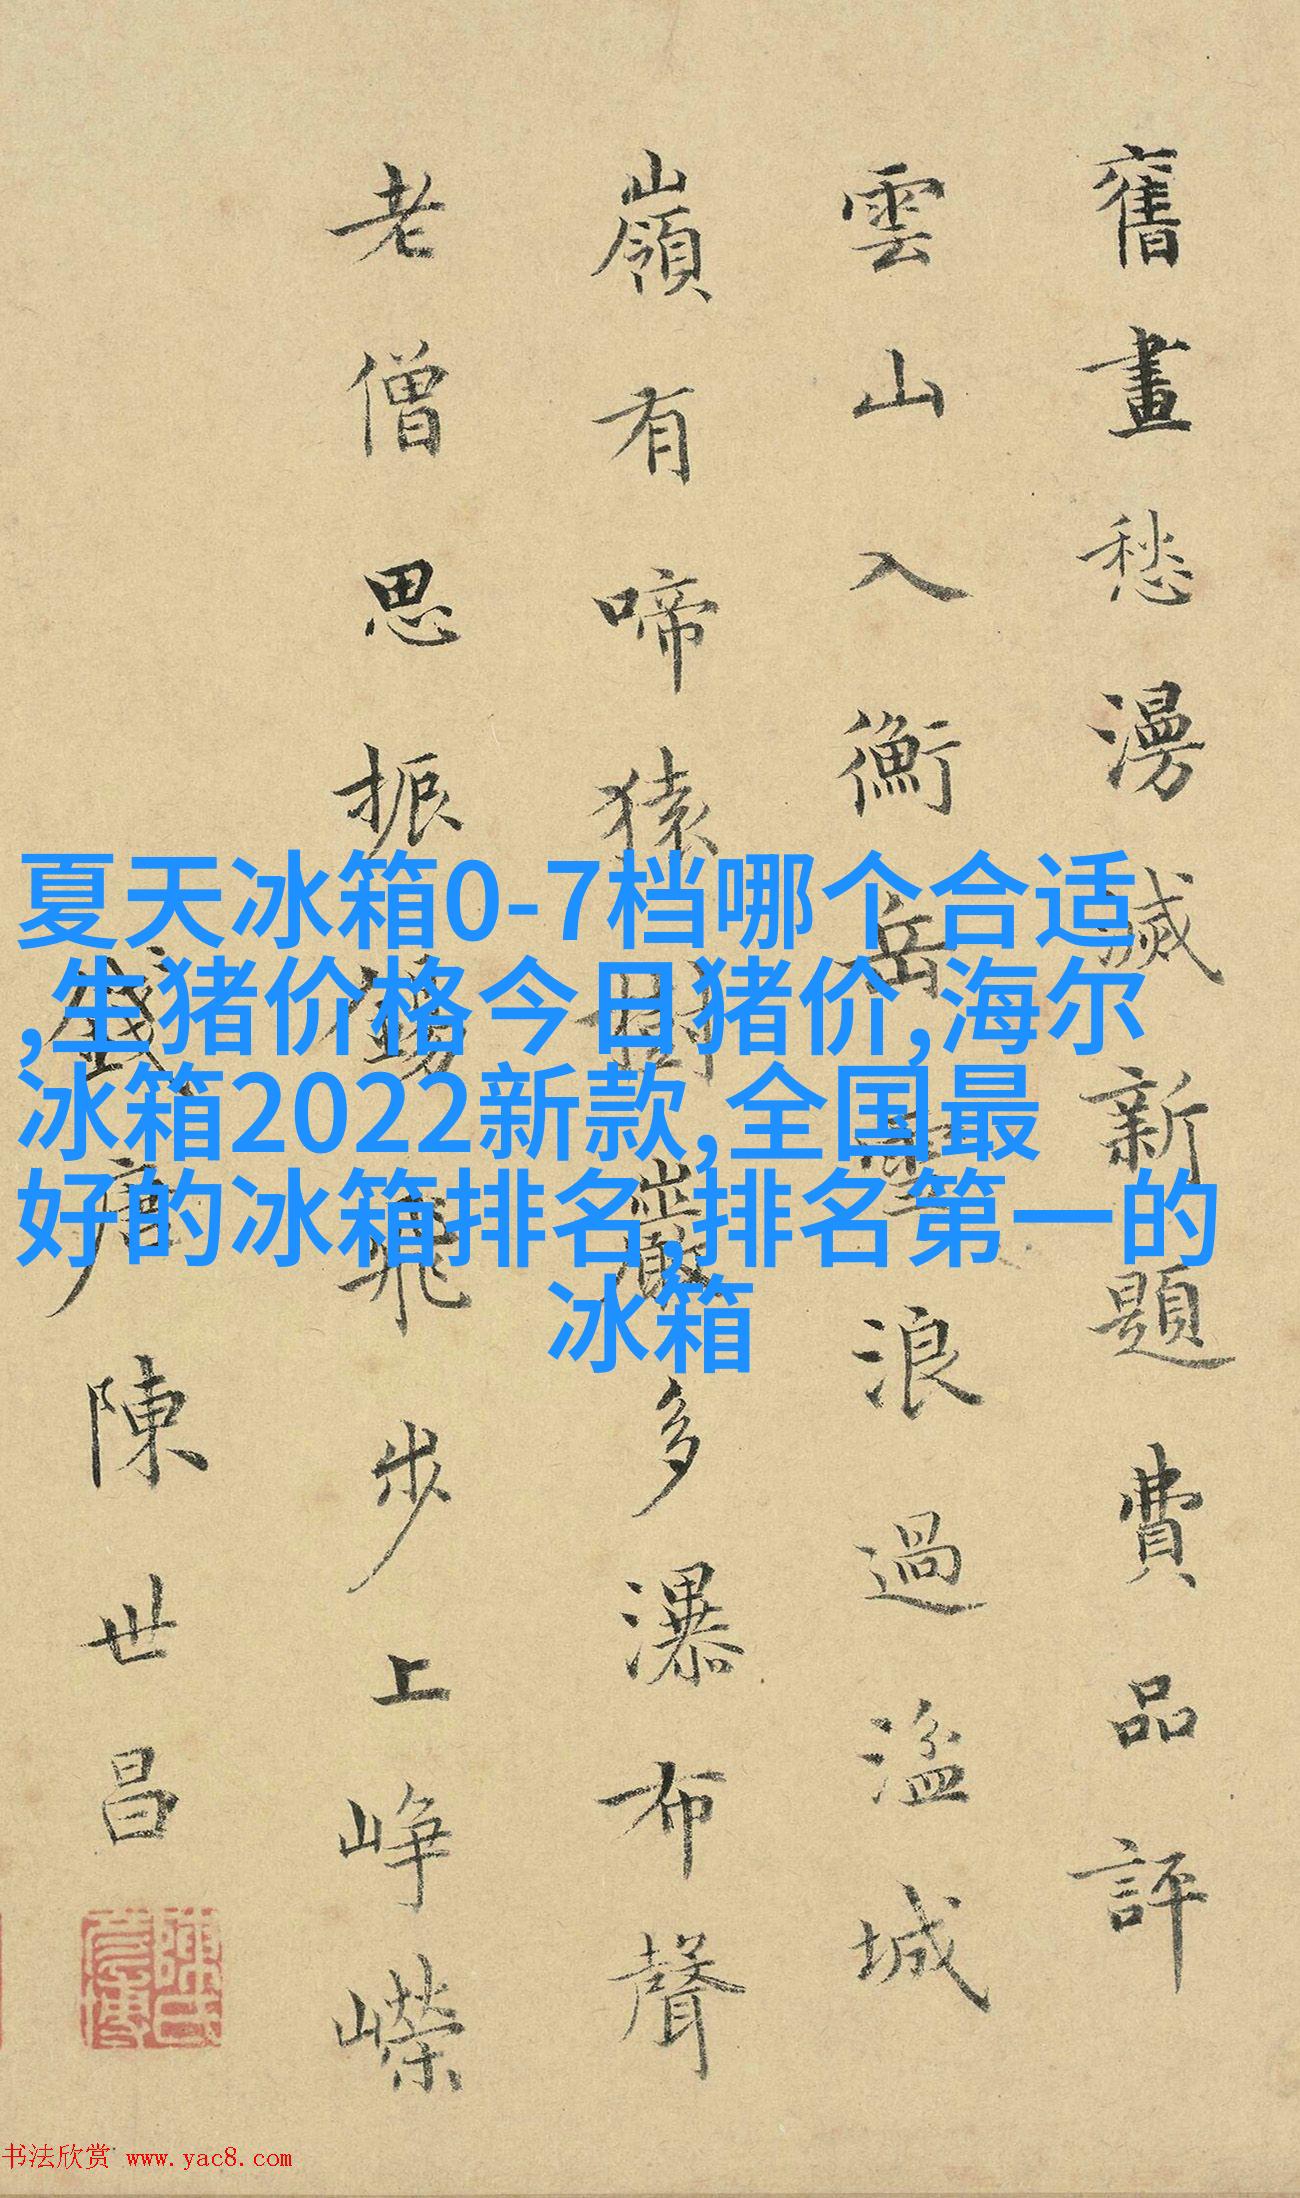 舊畫愁漫滅新題費品評
雲山入衡岳雪浪過湓城
嶺有啼猿樹巖多瀑布聲
老僧思振錫飛步上崢嶸
錢唐陳世昌
夏天冰箱0-7档哪个合适
,生猪价格今日猪价,海尔
冰箱2022新款,全国最
好的冰箱排名,排名第一的
冰箱
书法欣赏 www.yac8.com